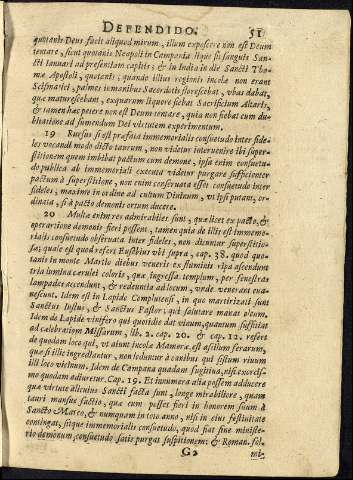 DEFENDIDO. 51
quotannis Deus facit aliquod mirum, illum exposcere non est Deum
tentare, sicut quotannis Neapoli in Campania liquescit sanguis San-
cti Ianuarij ad præsentiam capitis: & in India in die Sancti Tho-
mæ Apostoli, quotannis, quando illius regionis incolæ non erant
Schismatici, palmes in manibus Sacerdotis florescebat, vbas dabat,
quæ maturescebant, ex quarum liquore fiebat Sacrificium Altaris,
& tamen hæc petere non est Deum tentare, quia non fiebat cum du-
bitatione ad sumendum Dei virtutem experimentum.
19 Rursus si est præfata immemorialis consuetudo inter fide-
les vocandi modo dicto taurum, non videtur interuenire ibi super-
stitionem quem imbibat pactum cum demone, ipsa enim consuetu-
do publica ab immemoriali executa videtur purgare sufficienter
pactum à superstitione, non enim conseruata esset consuetudo inter
fideles, maxime in ordine ad cultum Diuinum, vt ipsi putant, or-
dinata, si à pacto demonis ortum ducere.
20 Multa enim res admirabiles sunt, quæ licet ex pacto, &
operatione demonis fieri possent, tamen quia de illis est immemo-
rialis consuetudo obseruata inter fideles, non dicuntur superstitio-
sa; quale est quod refert Eusebius vbi supra, cap. 38. quod quo-
tannis in monte Marilo diebus veneris ex fluminis ripa ascendunt
tria lumina cærulei coloris, quæ ingressa templum, per fenestras
lampades accendunt, & redeunt ad locum, vnde venerant eua-
nescunt. Idem est in Lapide Complutensi, in quo martirizati sunt
Sanctus Iustus, & Sanctus Pastor; qui salutare manat oleum.
Idem de Lapide vinifero qui quotidie dat vinum, quantum sufficiat
ad celebrationem Missarum, lib. 2. cap. 20. & cap. 12. refert
de quodam loco qui, vt aiunt incolæ Mamoræ est asilum ferarum,
quæ si illic ingrediantur, non læduntur à canibus qui sistum riuum
illi loco vicinum. Idem de Campana quadam fugitiua, nisi exorcis-
mo quodam adiuretur. Cap. 19. Et innumera alia possem adducere
quæ virtute aliquius Sancti facta sunt, longe mirabiliora, quam
tauri mansue factio, quæ cum posset fieri in honorem suum à
Sancto Marco, & numquam in toto anno, nisi in eius festiuitate
contingat, sitque immemorialis consuetudo, quod fiat sine ministe-
rio demonum, consuetudo satis purgat suspitionem: & Roman. sol-
G2 mi-